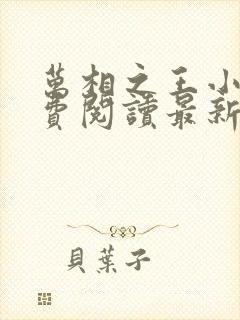 萬相之王小
費閱讀最新
貝葉子